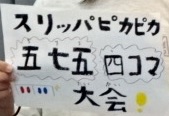 スリッパピカピカ
五七五 四コマ
大会!